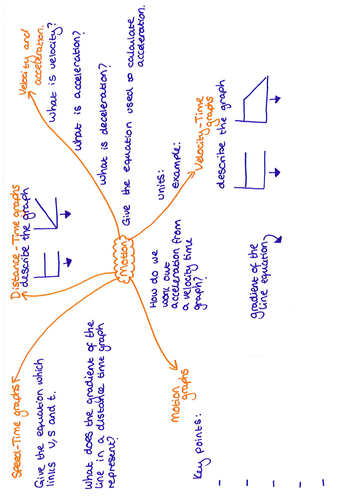 Speed-Time graphs
Give the equation which
links v, s and t.
What does the gradient of the
line in a distance time graph
represent?
Distance-Time graphs
describe the graph
Velocity and
acceleration.
What is velocity?
What is acceleration?
What is deceleration?
Give the equation used to calculate
acceleration.
Units:
Example:
Motion
How do we
work out
acceleration from
a velocity time
graph?
Velocity-Time
graphs
describe the graph
gradient of the
line equation
Motion
graphs
Key points: